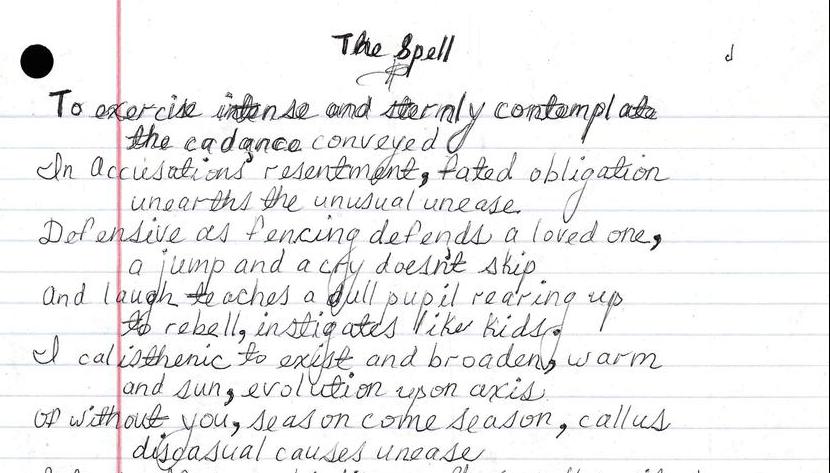 The Spell
To exercise intense and sternly contemplate
the cadance conveyed
In Accusations' resentment, fated obligation
unearths the unusual unease.
Defensive as fencing defends a loved one,
a jump and a cry doesn't skip
And laugh teaches a dull pupil rearing up
to rebell, instigates like kids.
I calisthenic to exist and broaden, warm
and sun, evolution upon axis
of without you, season come season, callus
disgasual causes unease